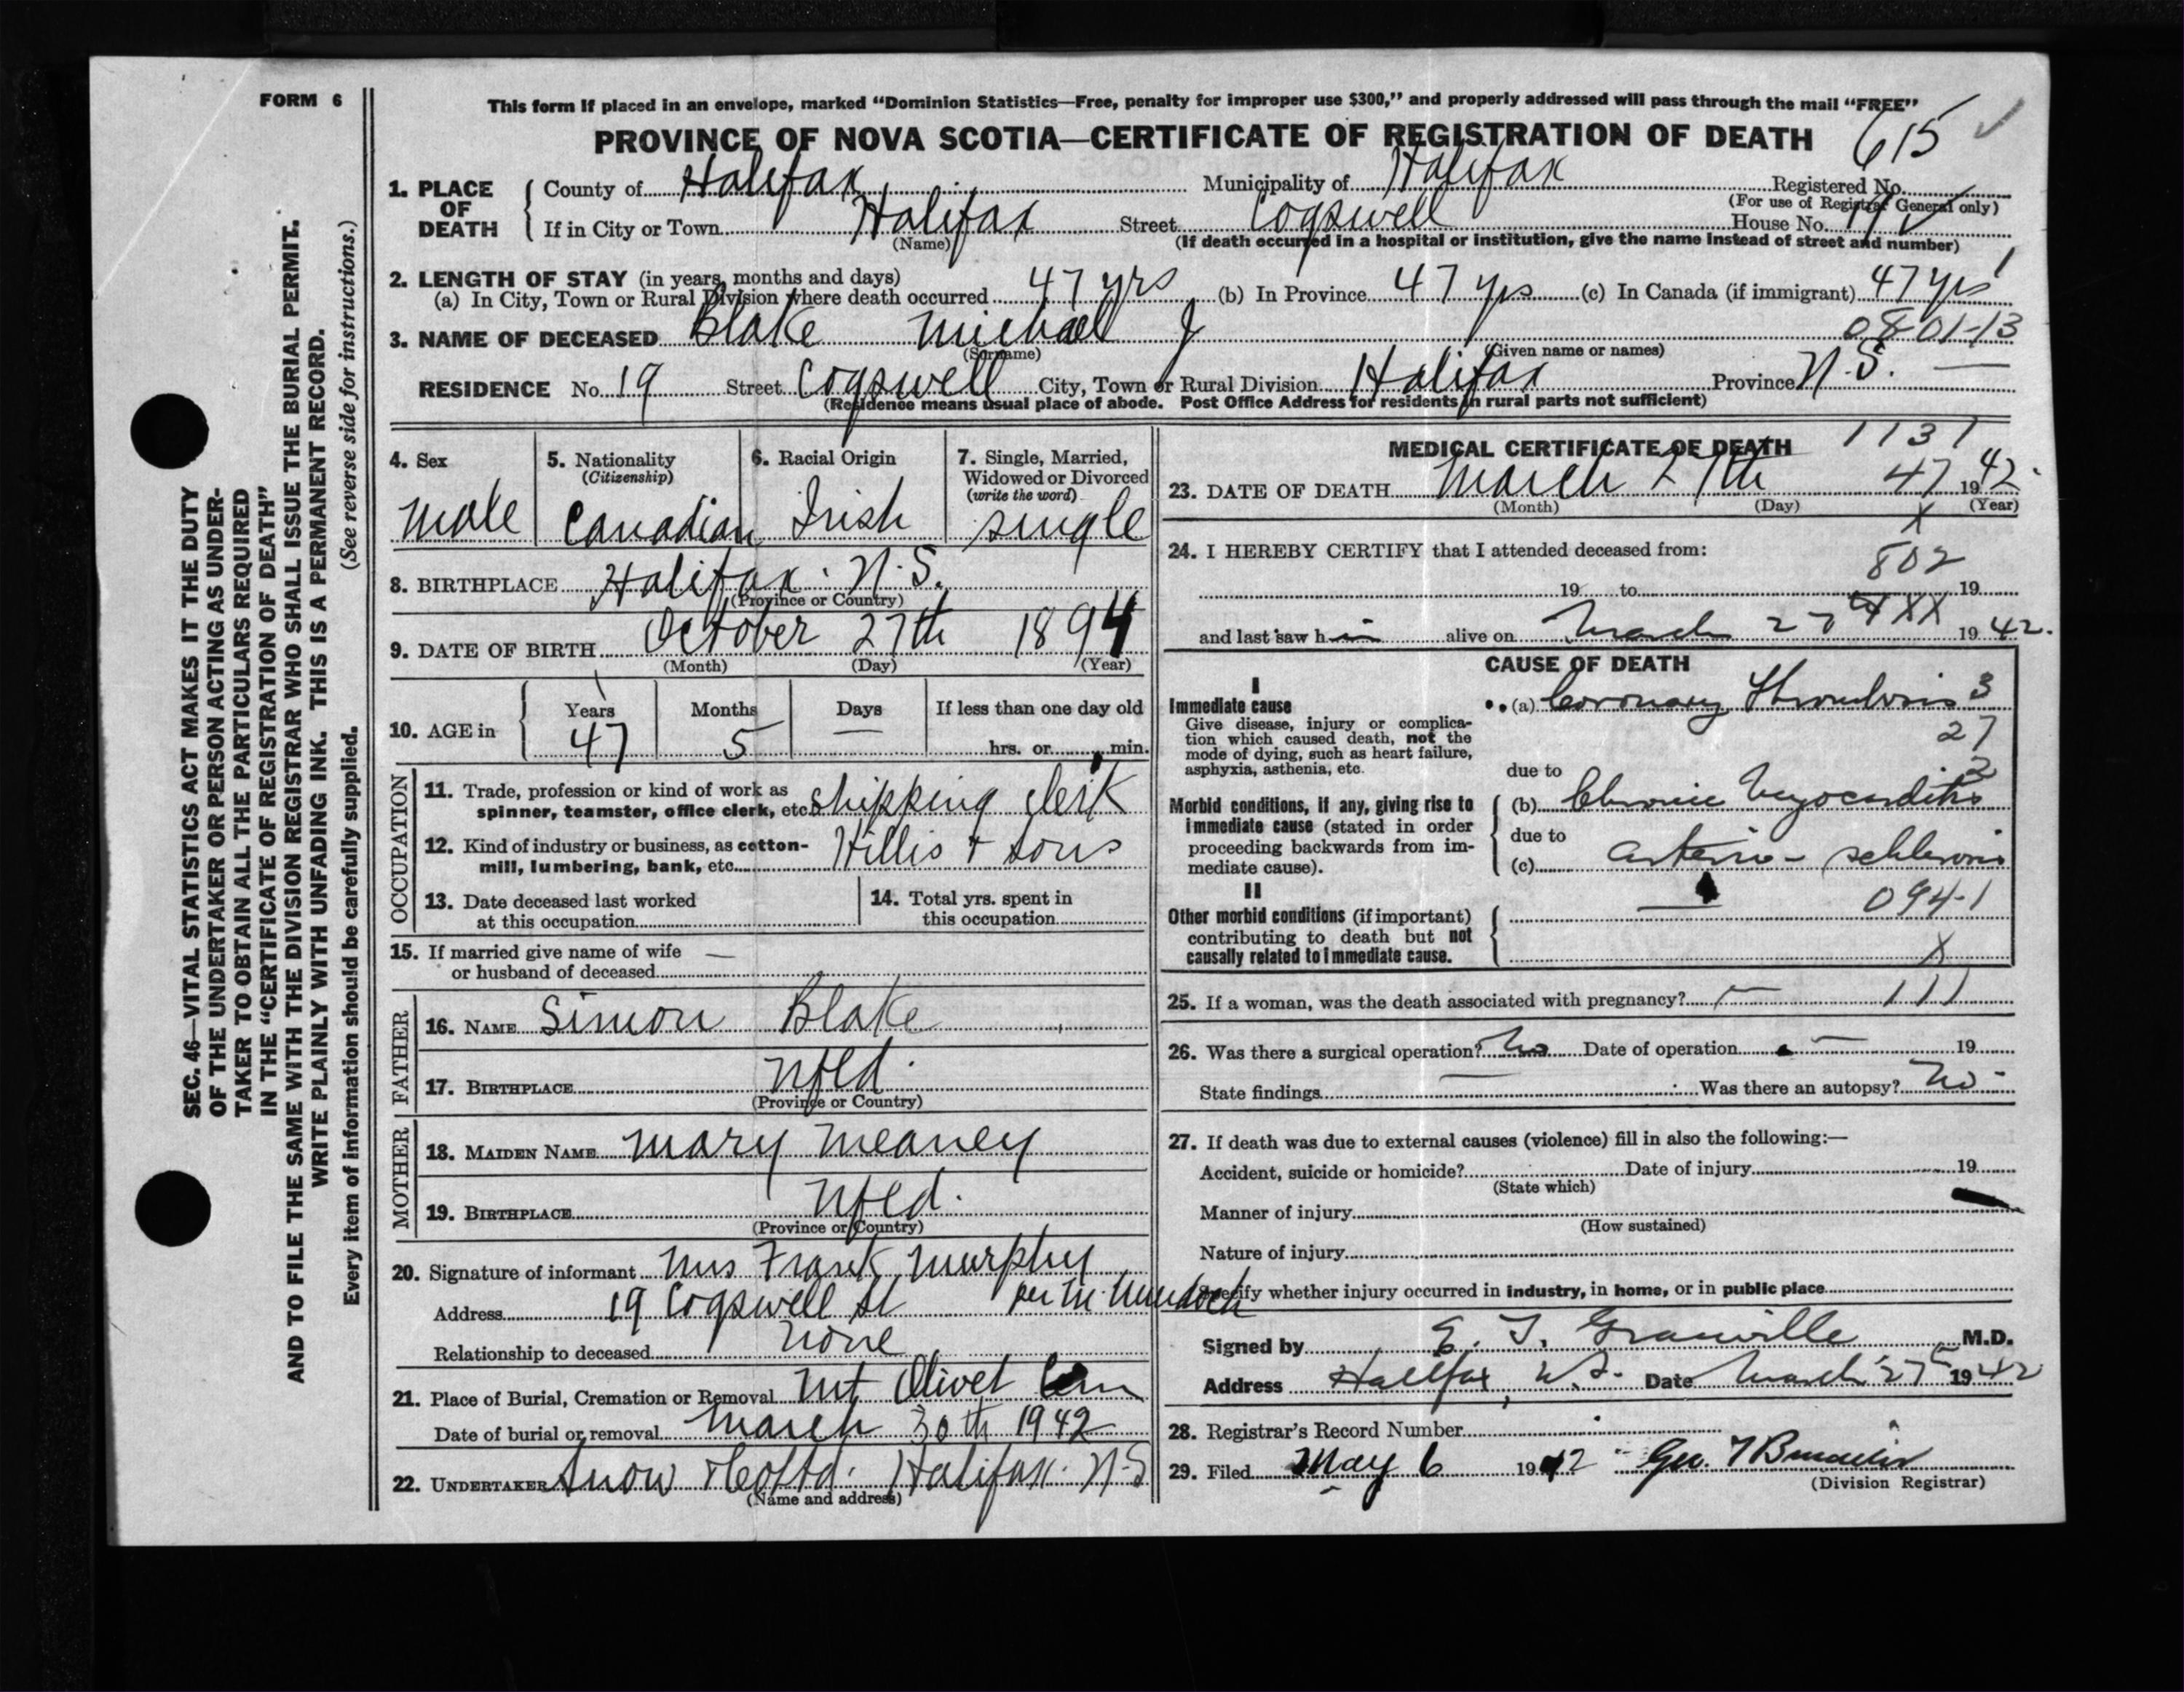 FORM 6
This form if placed in an envelope, marked “Dominion Statistics—Free, penalty for improper use $300,” and properly addressed will pass through the mail “FREE”
PROVINCE OF NOVA SCOTIA—CERTIFICATE OF REGISTRATION OF DEATH
615
1. PLACE OF DEATH
County of Halifax Municipality of Halifax Registered No.
(For use of Registrar General only)
If in City or Town Halifax Street Cogswell House No. 19
(Name) (If death occurred in a hospital or institution, give the name instead of street and number)
2. LENGTH OF STAY (in years, months and days)
(a) In City, Town or Rural Division where death occurred 47 yrs (b) In Province 47 yrs (c) In Canada (if immigrant) 47 yrs
3. NAME OF DECEASED Blake Michael J 0801-13
(Surname) (Given name or names)
RESIDENCE No. 19 Street Cogswell City, Town or Rural Division Halifax Province N.S.
(Residence means usual place of abode. Post Office Address for residents in rural parts not sufficient)
4. Sex
male
5. Nationality
(Citizenship)
Canadian
6. Racial Origin
Irish
7. Single, Married, Widowed or Divorced
(write the word)
single
8. BIRTHPLACE Halifax. N.S.
(Province or Country)
9. DATE OF BIRTH October 27th 1894
(Month) (Day) (Year)
10. AGE in
Years Months Days If less than one day old
47 5 — hrs. or min.
OCCUPATION
11. Trade, profession or kind of work as
spinner, teamster, office clerk, etc. shipping clerk
12. Kind of industry or business, as cotton-
mill, lumbering, bank, etc. Hillis & Sons
13. Date deceased last worked
at this occupation
14. Total yrs. spent in
this occupation
15. If married give name of wife —
or husband of deceased
FATHER
16. NAME Simon Blake
17. BIRTHPLACE Nfld.
(Province or Country)
MOTHER
18. MAIDEN NAME Mary Meaney
19. BIRTHPLACE Nfld.
(Province or Country)
20. Signature of informant Mrs Frank Murphy
per M. Murdoch
Address 19 Cogswell St
Relationship to deceased none
21. Place of Burial, Cremation or Removal Mt Olivet Cem
Date of burial or removal March 30th 1942
22. UNDERTAKER Snow & Co Ltd. Halifax. N.S
(Name and address)
MEDICAL CERTIFICATE OF DEATH 1131
23. DATE OF DEATH March 27th 47 1942.
(Month) (Day) (Year)
X
24. I HEREBY CERTIFY that I attended deceased from:
802
19 to 19
XX
and last saw him alive on March 27 1942.
CAUSE OF DEATH
I
Immediate cause
Give disease, injury or complica-
tion which caused death, not the
mode of dying, such as heart failure,
asphyxia, asthenia, etc.
(a) Coronary Thrombosis 3
27
due to
Morbid conditions, if any, giving rise to
immediate cause (stated in order
proceeding backwards from im-
mediate cause).
(b) Chronic Myocarditis
due to
(c) arterio-schlerosis
II
Other morbid conditions (if important)
contributing to death but not
causally related to immediate cause.
— 094-1
X
25. If a woman, was the death associated with pregnancy? — 111
26. Was there a surgical operation? No Date of operation — 19
State findings — Was there an autopsy? No
27. If death was due to external causes (violence) fill in also the following:—
Accident, suicide or homicide? Date of injury 19
(State which)
Manner of injury
(How sustained)
Nature of injury
Specify whether injury occurred in industry, in home, or in public place
Signed by E. T. Granville M.D.
Address Halifax, N.S. Date March 27 1942
28. Registrar's Record Number
29. Filed May 6 1942 Geo.
(Division Registrar)
SEC. 46—VITAL STATISTICS ACT MAKES IT THE DUTY
OF THE UNDERTAKER OR PERSON ACTING AS UNDER-
TAKER TO OBTAIN ALL THE PARTICULARS REQUIRED
IN THE “CERTIFICATE OF REGISTRATION OF DEATH”
AND TO FILE THE SAME WITH THE DIVISION REGISTRAR WHO SHALL ISSUE THE BURIAL PERMIT.
WRITE PLAINLY WITH UNFADING INK. THIS IS A PERMANENT RECORD.
Every item of information should be carefully supplied. (See reverse side for instructions.)